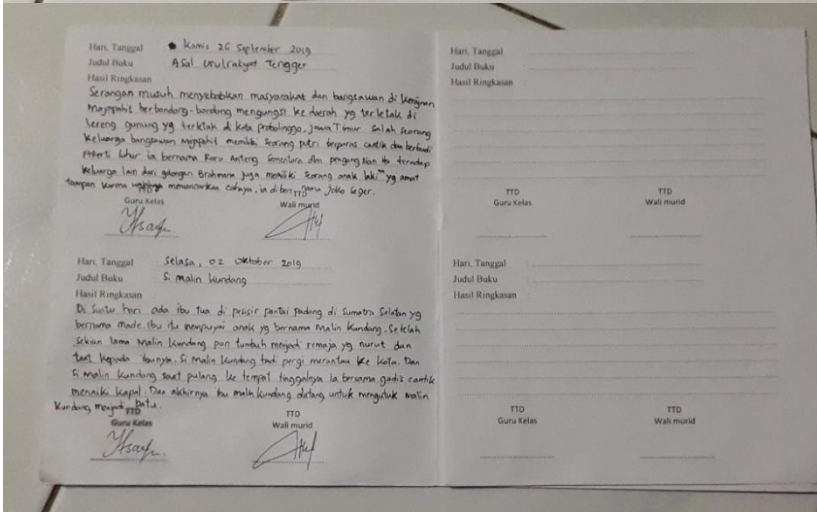 Hari, Tanggal Kamis 26 September 2019
Judul Buku Asal Usul rakyat Tengger
Hasil Ringkasan
Serangan musuh menyebabkan masyarakat dan bangsawan di Kerajaan
Majapahit berbondong-bondong mengungsi ke daerah yg terletak di
lereng gunung yg terletak di kota probolinggo, jawa Timur salah seorang
keluarga bangsawan Majapahit memiliki seorang putri terparas cantik dan berbudi
Pekerti luhur ia bernama Roro Anteng. Sementara dlm
keluarga lain dari golongan Brahmana juga memiliki seorang anak laki" yg amat
tampan karna memancarkan cahaya, ia diberi nama Joko Seger.
TTD TTD
Guru Kelas Wali murid
Hari, Tanggal Selasa, 02 Oktober 2019
Judul Buku Si malin kundang
Hasil Ringkasan
Di Suatu hari ada ibu tua di pesisir pantai padang di Sumatra Selatan yg
bernama made. Ibu itu mempunyai anak yg bernama Malin Kundang. Setelah
sekian lama Malin Kundang pun tumbuh menjadi remaja yg nurut dan
taat kepada ibunya. Si Malin kundang tadi pergi merantau ke kota. Dan
Si Malin Kundang saat pulang ke tempat tinggalnya ia bersama gadis cantik
menaiki kapal. Dan akhirnya ibu malin kundang datang untuk mengutuk malin
kundang menjadi batu.
TTD TTD
Guru Kelas Wali murid
Hari, Tanggal :
Judul Buku :
Hasil Ringkasan
TTD TTD
Guru Kelas Wali murid
Hari, Tanggal :
Judul Buku :
Hasil Ringkasan :
TTD TTD
Guru Kelas Wali murid